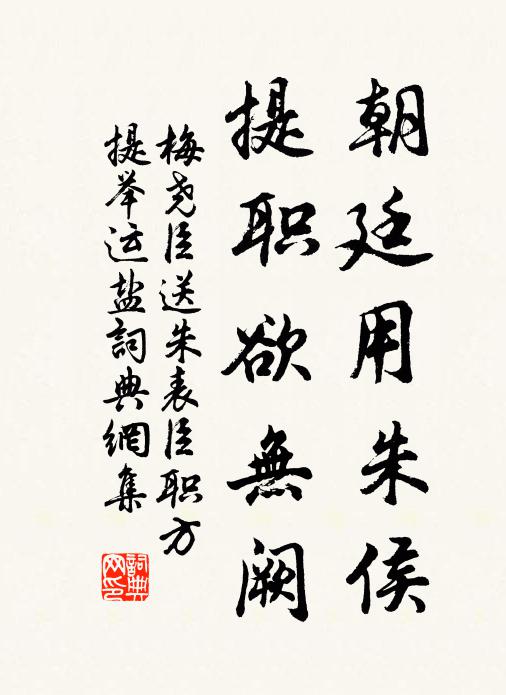 朝廷用朱侯
提职欲無阙
梅尧臣送朱表臣职方
提举运盐詞典網集
詞典网印